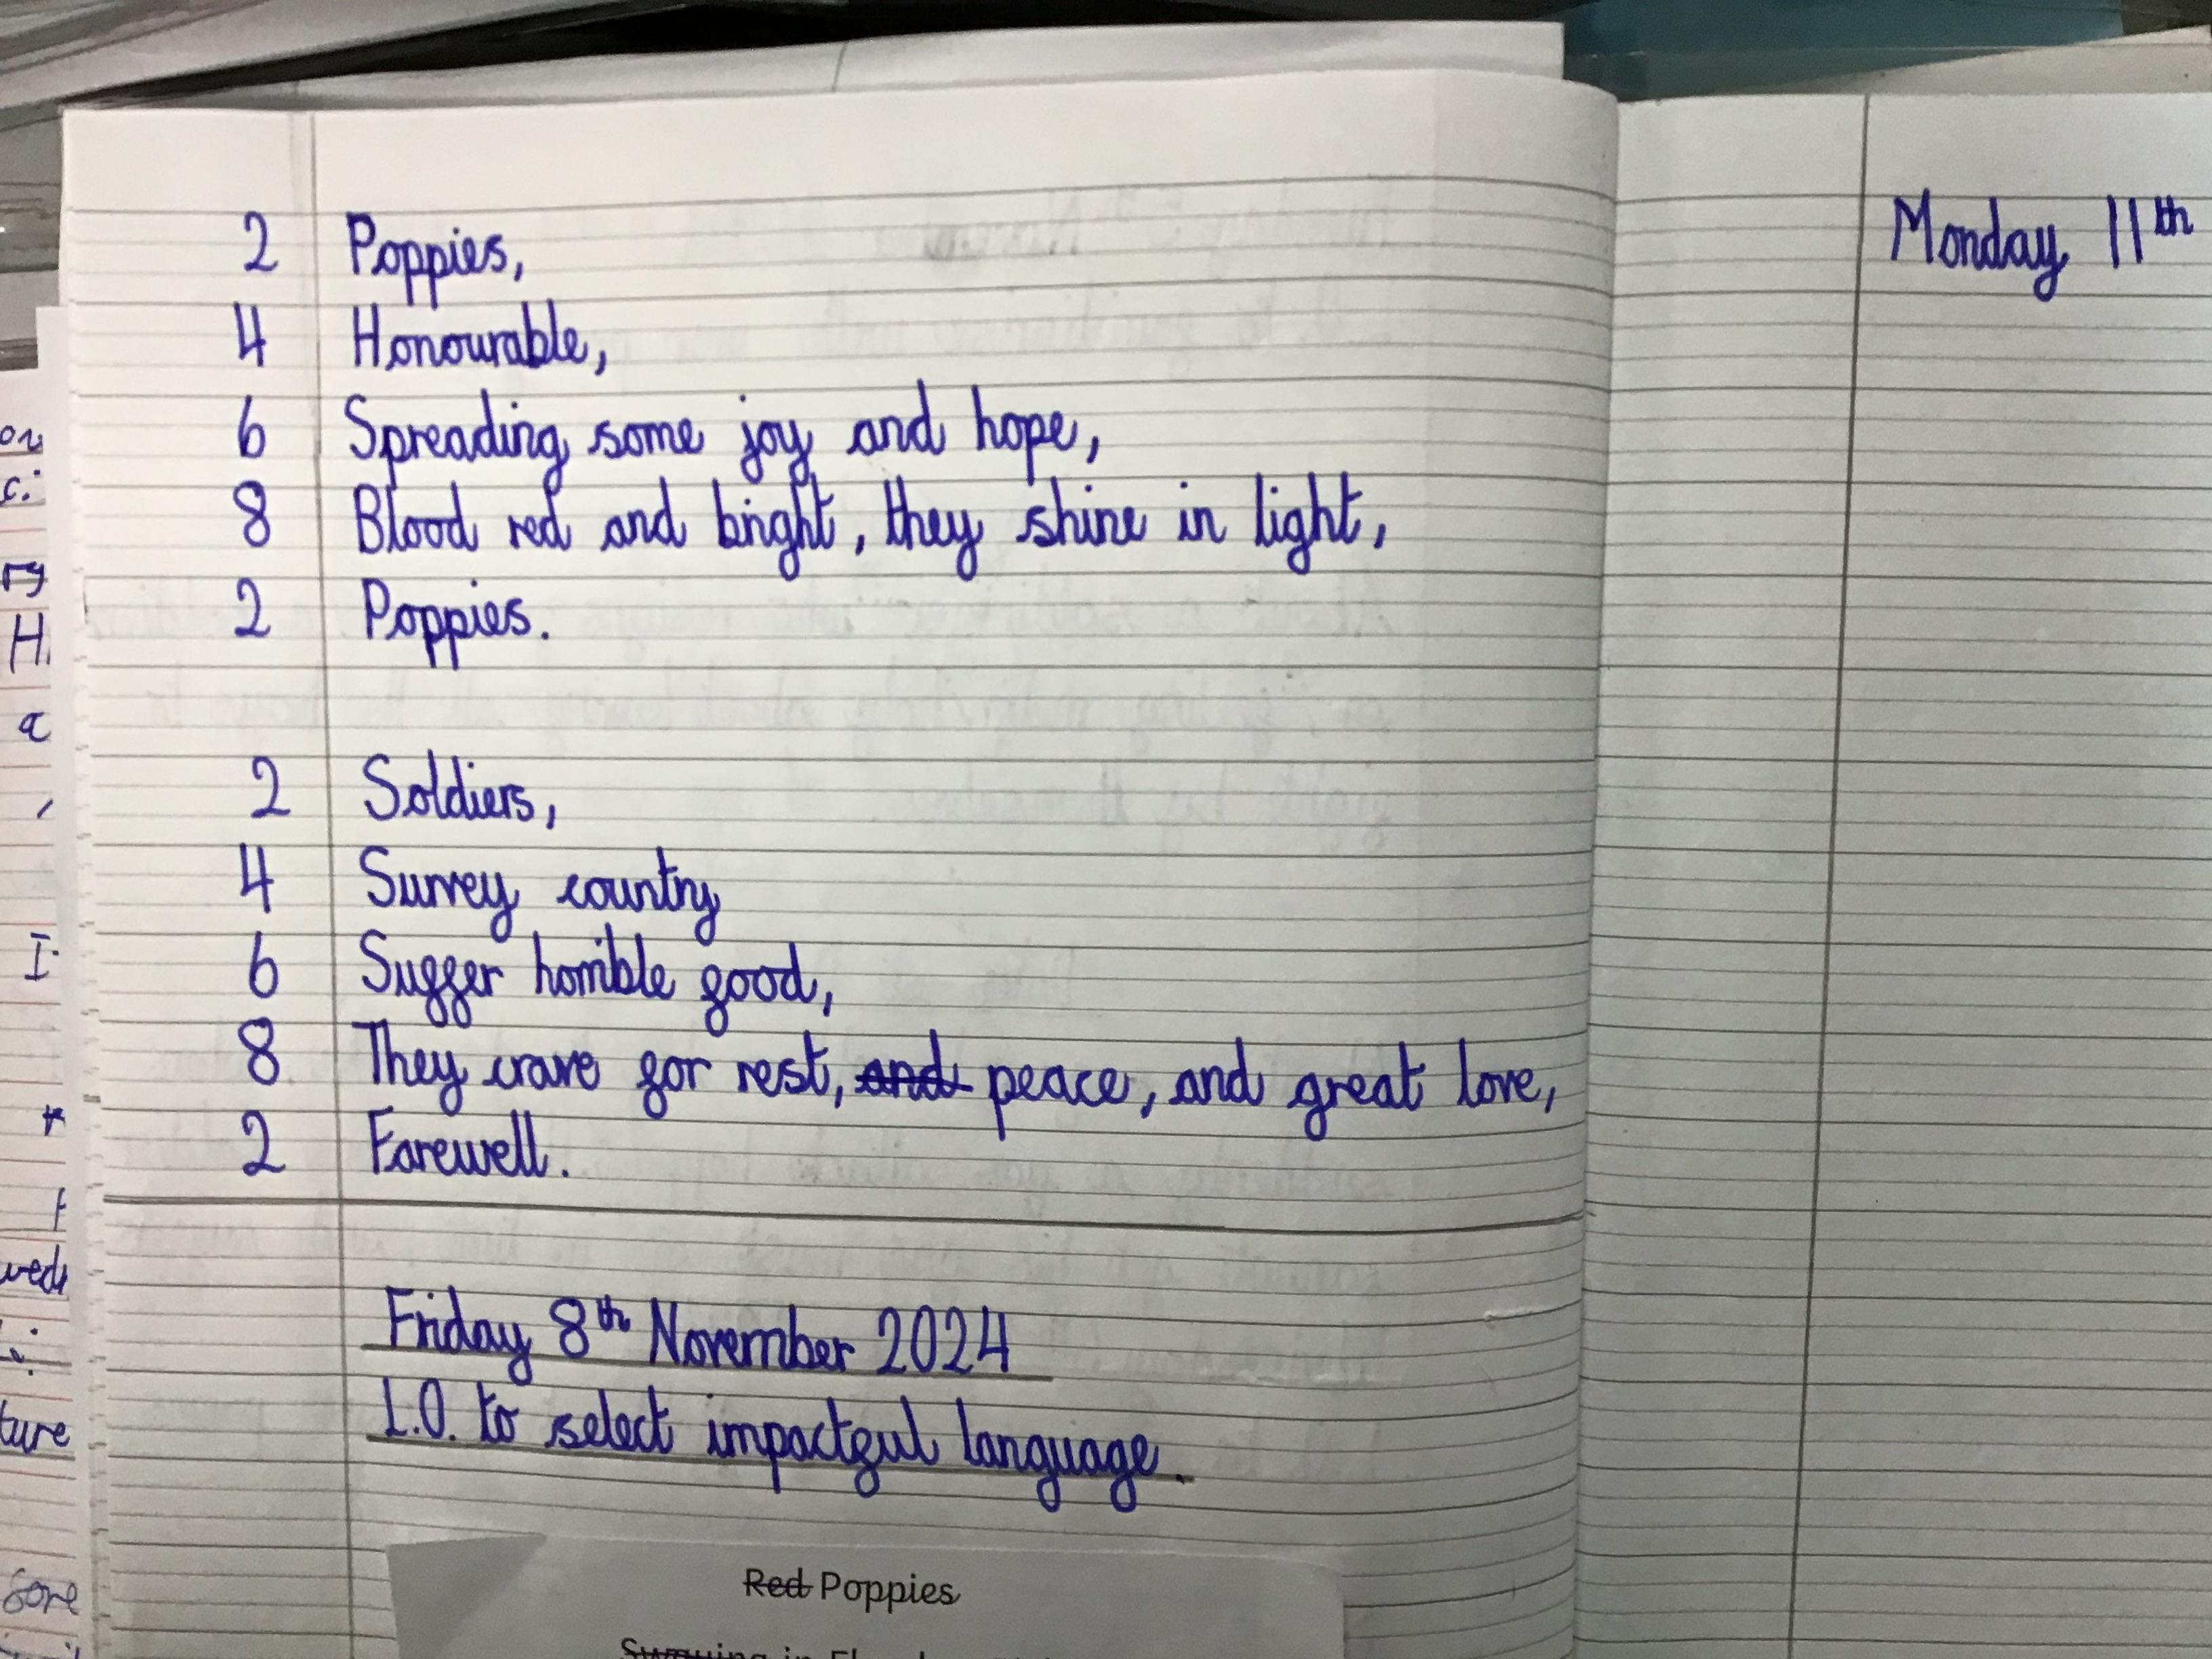 2 Poppies,
4 Honourable,
6 Spreading some joy and hope,
8 Blood red and bright, they shine in light,
2 Poppies.
2 Soldiers,
4 Survey country
6 Suffer horrible food,
8 They crave for rest, and peace, and great love,
2 Farewell.
Friday 8th November 2024
L.O. to select impactful language.
Red Poppies
Swaying in
Monday 11th